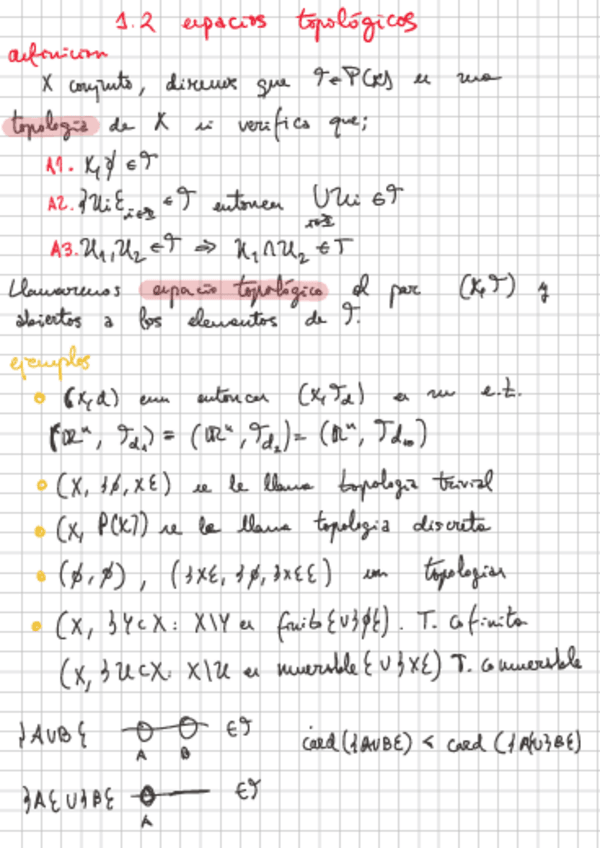 1.2 espacios topológicos
definicion
X conjunto, diremos que 𝒯∈P(X) es una
topología de X si verifica que;
A1. X,∅ ∈𝒯
A2. {Ui}i∈I ∈𝒯 entonces ⋃i∈I Ui ∈𝒯
A3. U1,U2 ∈𝒯 ⇒ U1∩U2 ∈T
Llamaremos espacio topológico al par (X,𝒯) y
abiertos a los elementos de 𝒯.
ejemplos
• (X,d) entonces (X,𝒯d) es un e.t.
(ℝⁿ, 𝒯d1) = (ℝⁿ, 𝒯d2) = (ℝⁿ, 𝒯d∞)
• (X, {∅,X}) se le llama topologia trivial
• (X, P(X)) se le llama topologia discreta
• (∅,∅), ({x}, {∅,{x}}) son topologias
• (X, {Y⊂X: X\Y es finito}∪{∅}). T. cofinita
(X, {U⊂X: X\U es numerable}∪{X}) T. conumerable
{A∪B} ∈𝒯 card({A∪B}) < card({A}∪{B})
A B
{A}∪{B} ∈𝒯
A